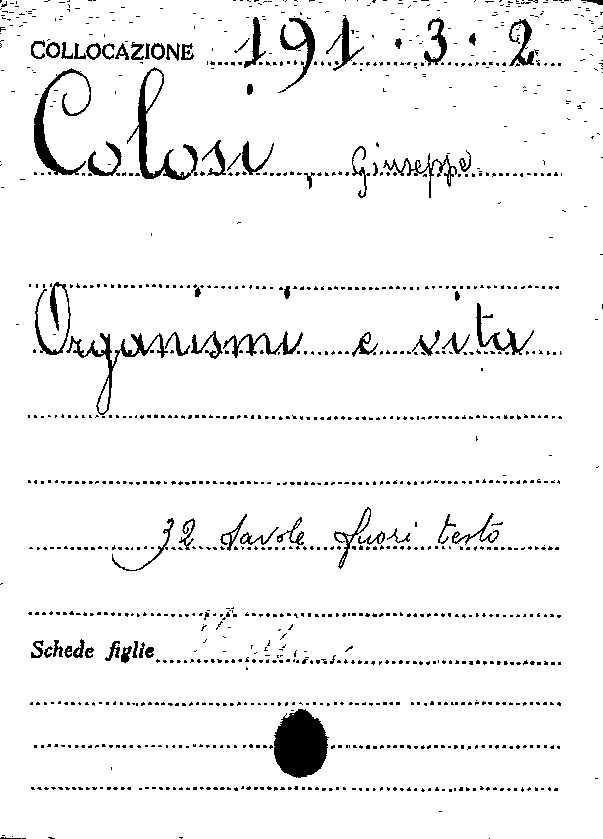 COLLOCAZIONE 191 · 3 · 2
Colosi, Giuseppe
Organismi e vita
32 tavole fuori testo
Schede figlie